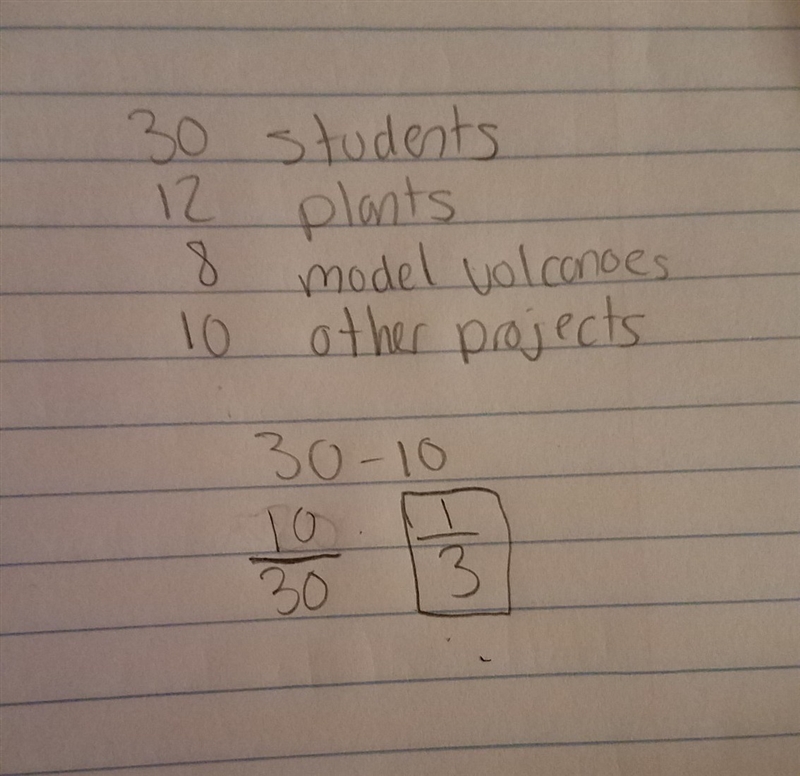 30 students
12 plants
8 model volcanoes
10 other projects
30-10
10/30 1/3